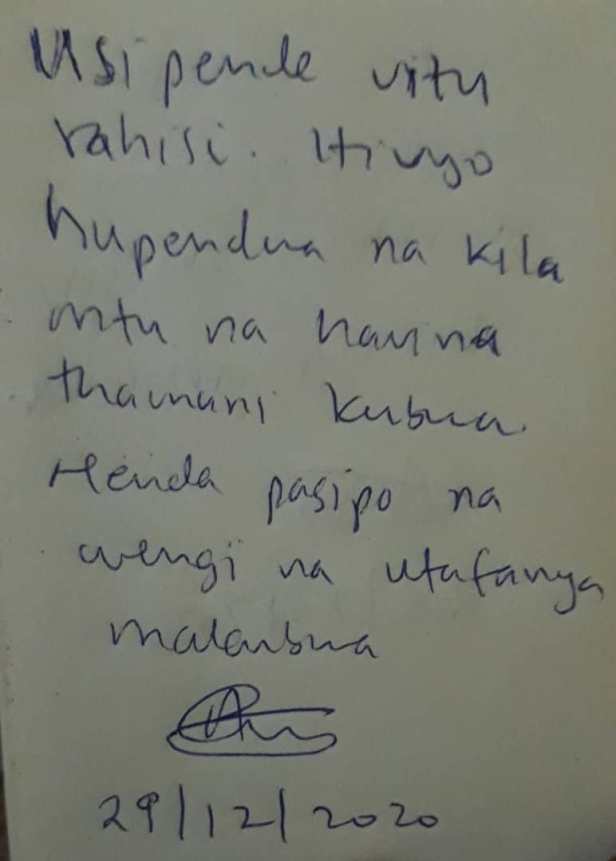 Usipende vitu
rahisi. Hivyo
hupendwa na kila
mtu na hauna
thamani kubwa.
Henda pasipo na
wengi na utafanya
makubwa
29/12/2020